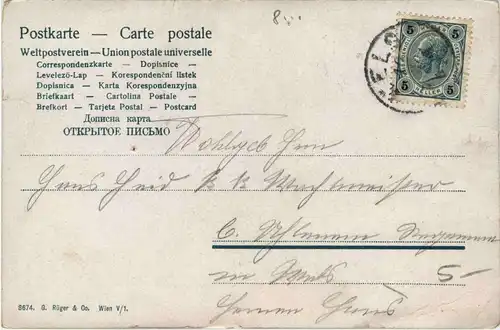 Postkarte — Carte postale
Weltpostverein — Union postale universelle
Correspondenzkarte — Dopisnice —
Levelező-Lap — Korespondenční lístek
Dopisnica — Karta Korespondenzyjna
Briefkaart — Cartolina Postale —
Brefkort — Tarjeta Postal — Postcard
Дописна карта
ОТКРЫТОЕ ПИСЬМО
5 5
5 HELLER 5
Wohlgeb Herrn
Hans Heid k k Wachmeister
in
5-
Hans
8674. B. Rüger & Co. Wien V/1.